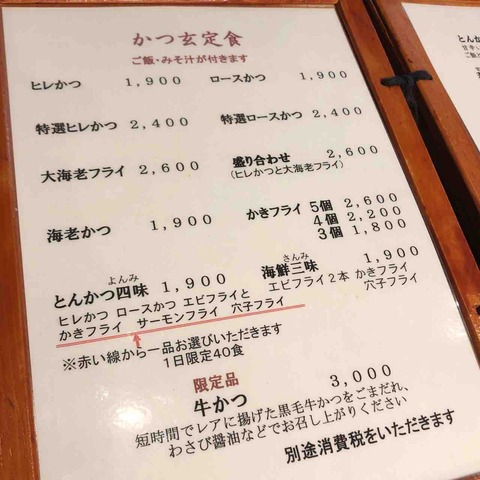 かつ玄定食
ご飯・みそ汁が付きます
ヒレかつ 1,900 ロースかつ 1,900
特選ヒレかつ 2,400 特選ロースかつ 2,400
大海老フライ 2,600 盛り合わせ 2,600
(ヒレかつと大海老フライ)
海老かつ 1,900 かきフライ 5個 2,600
4個 2,200
3個 1,800
よんみ
とんかつ四味 1,900
ヒレかつ ロースかつ エビフライと
かきフライ サーモンフライ 穴子フライ
さんみ
海鮮三味 1,900
エビフライ2本 かきフライ
穴子フライ
※赤い線から一品お選びいただきます
1日限定40食
限定品
牛かつ 3,000
短時間でレアに揚げた黒毛牛かつをごまだれ、
わさび醤油などでお召し上がりください
別途消費税をいただきます
とんか